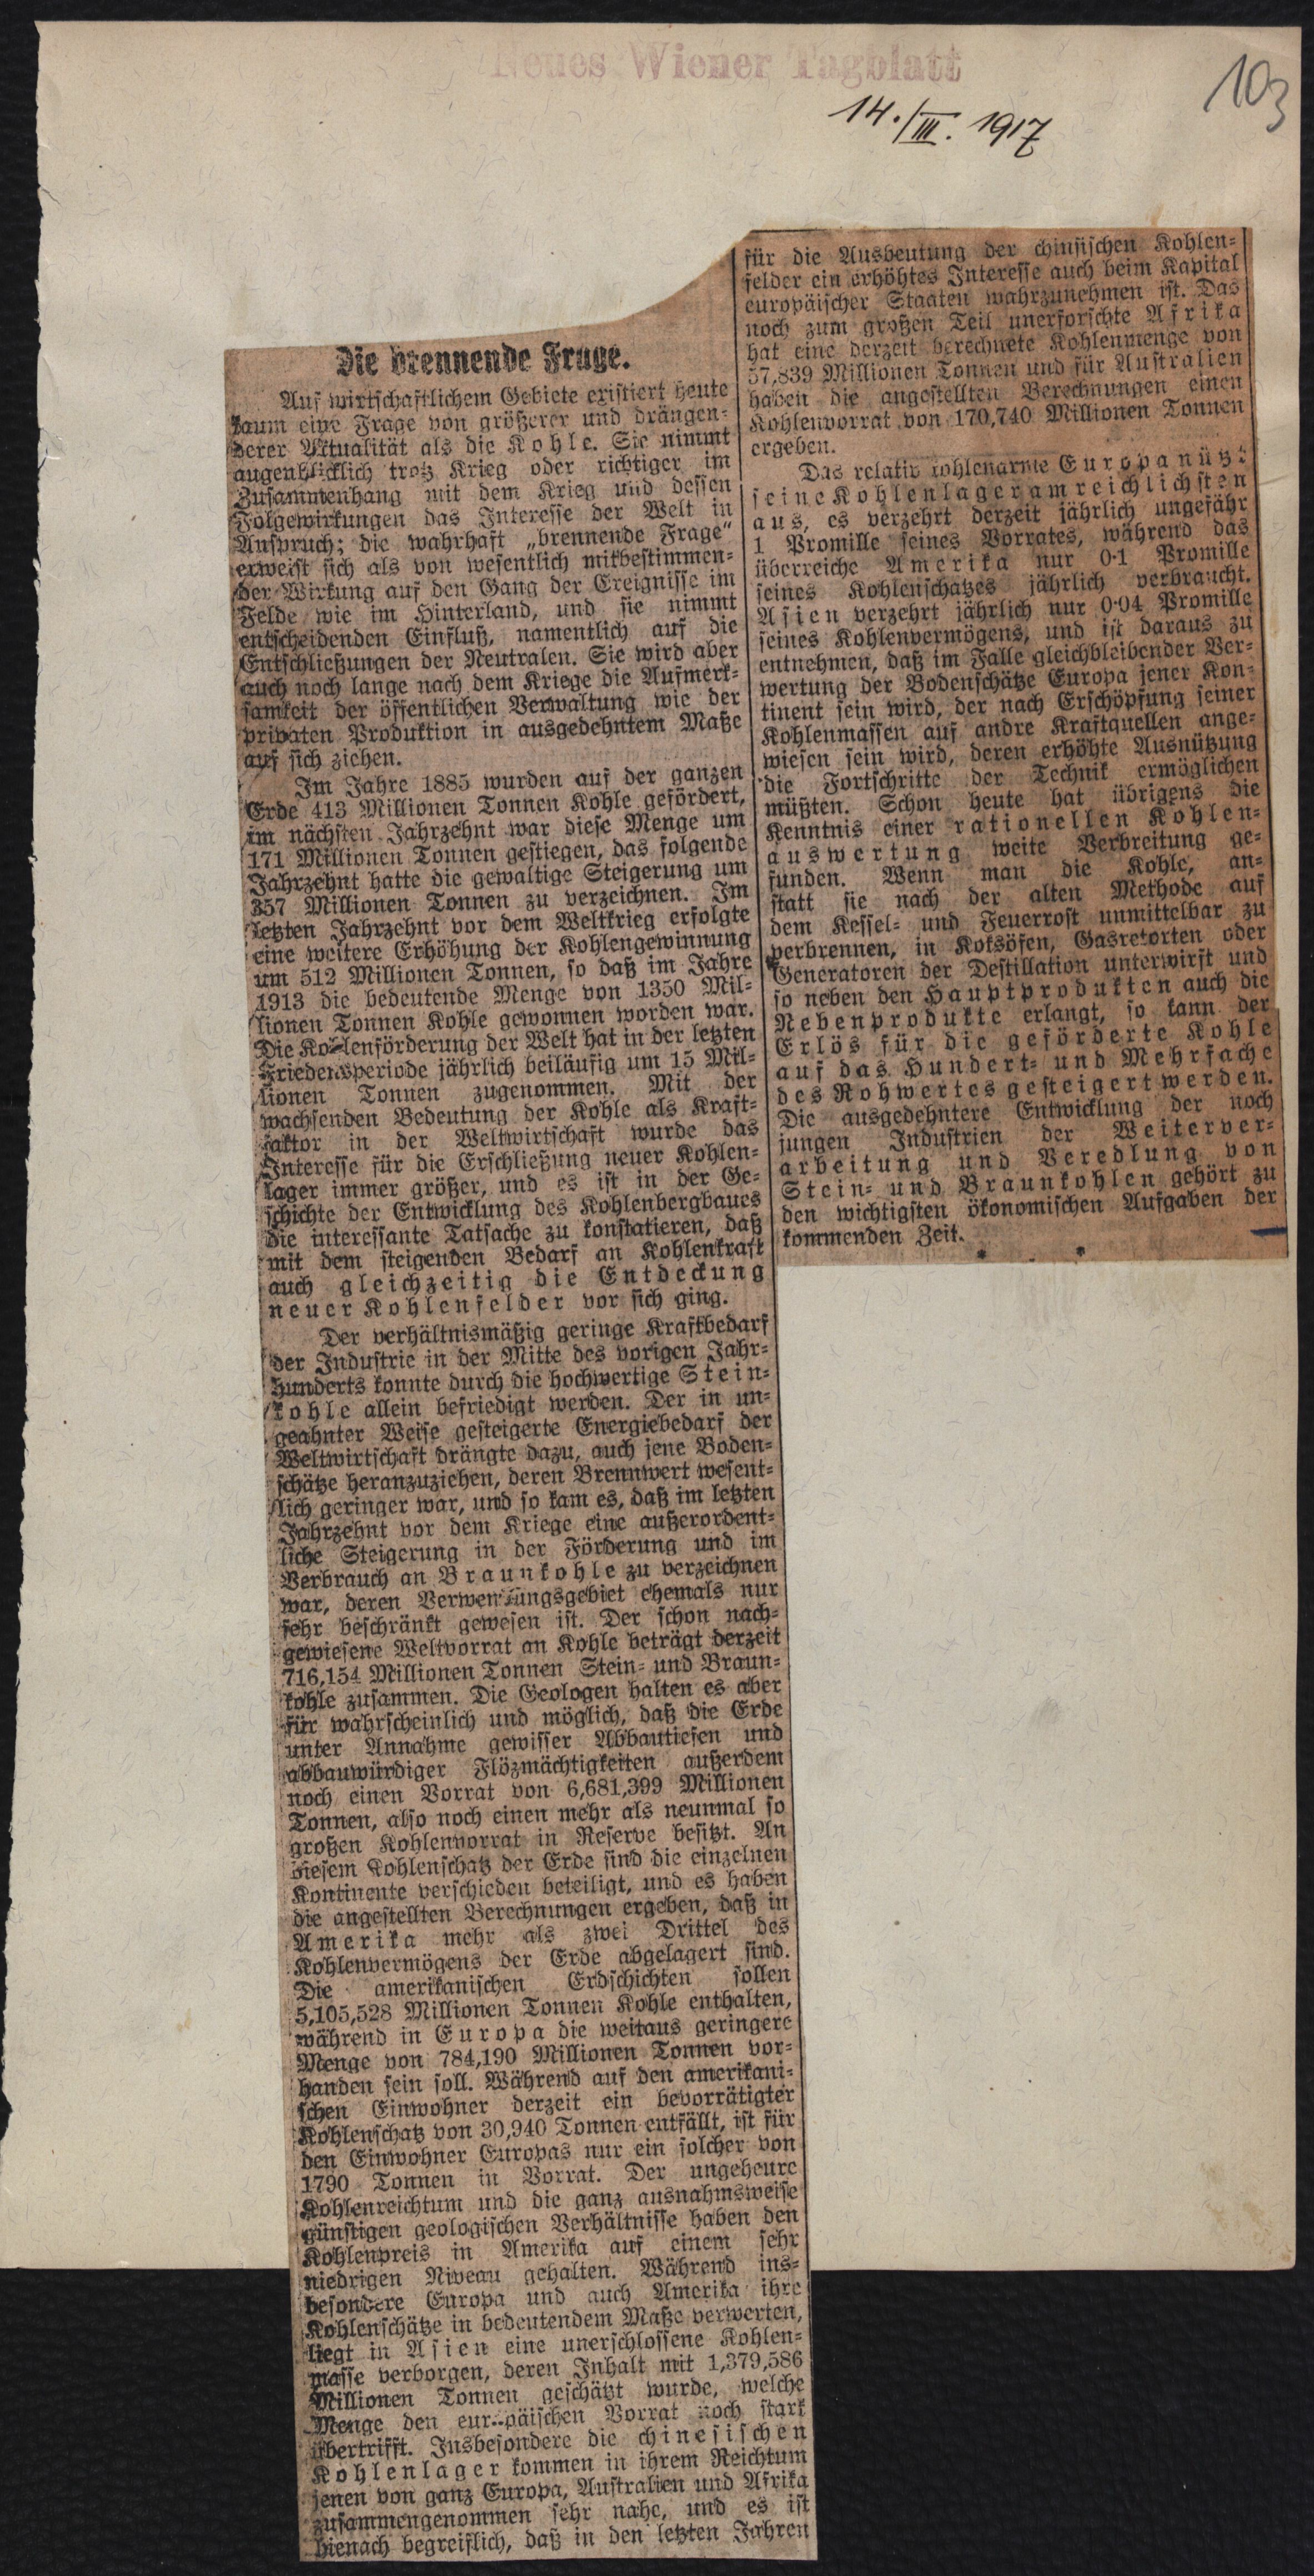 Neues Wiener Tagblatt
103
14./III. 1917
Die brennende Frage.
Auf wirtschaftlichem Gebiete existiert heute
kaum eine Frage von größerer und drängen-
derer Aktualität als die Kohle. Sie nimmt
augenblicklich trotz Krieg oder richtiger im
Zusammenhang mit dem Krieg und dessen
Folgewirkungen das Interesse der Welt in
Anspruch; die wahrhaft „brennende Frage“
erweist sich als von wesentlich mitbestimmen-
der Wirkung auf den Gang der Ereignisse im
Felde wie im Hinterland, und sie nimmt
entscheidenden Einfluß, namentlich auf die
Entschließungen der Neutralen. Sie wird aber
auch noch lange nach dem Kriege die Aufmerk-
samkeit der öffentlichen Verwaltung wie der
privaten Produktion in ausgedehntem Maße
auf sich ziehen.
Im Jahre 1885 wurden auf der ganzen
Erde 413 Millionen Tonnen Kohle gefördert,
im nächsten Jahrzehnt war diese Menge um
171 Millionen Tonnen gestiegen, das folgende
Jahrzehnt hatte die gewaltige Steigerung um
357 Millionen Tonnen zu verzeichnen. Im
letzten Jahrzehnt vor dem Weltkrieg erfolgte
eine weitere Erhöhung der Kohlengewinnung
um 512 Millionen Tonnen, so daß im Jahre
1913 die bedeutende Menge von 1350 Mil-
lionen Tonnen Kohle gewonnen worden war.
Die Kohlenförderung der Welt hat in der letzten
Friedensperiode jährlich beiläufig um 15 Mil-
lionen Tonnen zugenommen. Mit der
wachsenden Bedeutung der Kohle als Kraft-
faktor in der Weltwirtschaft wurde das
Interesse für die Erschließung neuer Kohlen-
lager immer größer, und es ist in der Ge-
schichte der Entwicklung des Kohlenbergbaues
die interessante Tatsache zu konstatieren, daß
mit dem steigenden Bedarf an Kohlenkraft
auch gleichzeitig die Entdeckung
neuer Kohlenfelder vor sich ging.
Der verhältnismäßig geringe Kraftbedarf
der Industrie in der Mitte des vorigen Jahr-
hunderts konnte durch die hochwertige Stein-
kohle allein befriedigt werden. Der in un-
geahnter Weise gesteigerte Energiebedarf der
Weltwirtschaft drängte dazu, auch jene Boden-
schätze heranzuziehen, deren Brennwert wesent-
lich geringer war, und so kam es, daß im letzten
Jahrzehnt vor dem Kriege eine außerordent-
liche Steigerung in der Förderung und im
Verbrauch an Braunkohle zu verzeichnen
war, deren Verwendungsgebiet ehemals nur
sehr beschränkt gewesen ist. Der schon nach-
gewiesene Weltvorrat an Kohle beträgt derzeit
716,154 Millionen Tonnen Stein- und Braun-
kohle zusammen. Die Geologen halten es aber
für wahrscheinlich und möglich, daß die Erde
unter Annahme gewisser Abbautiefen und
abbauwürdiger Flözmächtigkeiten außerdem
noch einen Vorrat von 6,681,399 Millionen
Tonnen, also noch einen mehr als neunmal so
großen Kohlenvorrat in Reserve besitzt. An
diesem Kohlenschatz der Erde sind die einzelnen
Kontinente verschieden beteiligt, und es haben
die angestellten Berechnungen ergeben, daß in
Amerika mehr als zwei Drittel des
Kohlenvermögens der Erde abgelagert sind.
Die amerikanischen Erdschichten sollen
5,105,528 Millionen Tonnen Kohle enthalten,
während in Europa die weitaus geringere
Menge von 784,190 Millionen Tonnen vor-
handen sein soll. Während auf den amerikani-
schen Einwohner derzeit ein bevorrätigter
Kohlenschatz von 30,940 Tonnen entfällt, ist für
den Einwohner Europas nur ein solcher von
1790 Tonnen in Vorrat. Der ungeheure
Kohlenreichtum und die ganz ausnahmsweise
günstigen geologischen Verhältnisse haben den
Kohlenpreis in Amerika auf einem sehr
niedrigen Niveau gehalten. Während ins-
besondere Europa und auch Amerika ihre
Kohlenschätze in bedeutendem Maße verwerten,
liegt in Asien eine unerschlossene Kohlen-
masse verborgen, deren Inhalt mit 1,379,586
Millionen Tonnen geschätzt wurde, welche
Menge den europäischen Vorrat noch stark
übertrifft. Insbesondere die chinesischen
Kohlenlager kommen in ihrem Reichtum
jenen von ganz Europa, Australien und Afrika
zusammengenommen sehr nahe, und es ist
hienach begreiflich, daß in den letzten Jahren
für die Ausbeutung der chinsischen Kohlen-
felder ein erhöhtes Interesse auch beim Kapital
europäischer Staaten wahrzunehmen ist. Das
noch zum großen Teil unerforschte Afrika
hat eine derzeit berechnete Kohlenmenge von
57,839 Millionen Tonnen und für Australien
haben die angestellten Berechnungen einen
Kohlenvorrat von 170,740 Millionen Tonnen
ergeben.
Das relativ kohlenarme Europa nützt
seine Kohlenlager am reichlichsten
aus, es verzehrt derzeit jährlich ungefähr
1 Promille seines Vorrates, während das
überreiche Amerika nur 0·1 Promille
seines Kohlenschatzes jährlich verbraucht.
Asien verzehrt jährlich nur 0·04 Promille
seines Kohlenvermögens, und ist daraus zu
entnehmen, daß im Falle gleichbleibender Ver-
wertung der Bodenschätze Europa jener Kon-
tinent sein wird, der nach Erschöpfung seiner
Kohlenmassen auf andre Kraftquellen ange-
wiesen sein wird, deren erhöhte Ausnützung
die Fortschritte der Technik ermöglichen
müßten. Schon heute hat übrigens die
Kenntnis einer rationellen Kohlen-
auswertung weite Verbreitung ge-
funden. Wenn man die Kohle, an-
statt sie nach der alten Methode auf
dem Kessel- und Feuerrost unmittelbar zu
verbrennen, in Koksöfen, Gasretorten oder
Generatoren der Destillation unterwirft und
so neben den Hauptprodukten auch die
Nebenprodukte erlangt, so kann der
Erlös für die geförderte Kohle
auf das Hundert- und Mehrfache
des Rohwertes gesteigert werden.
Die ausgedehntere Entwicklung der noch
jungen Industrien der Weiterver-
arbeitung und Veredlung von
Stein- und Braunkohlen gehört zu
den wichtigsten ökonomischen Aufgaben der
kommenden Zeit.